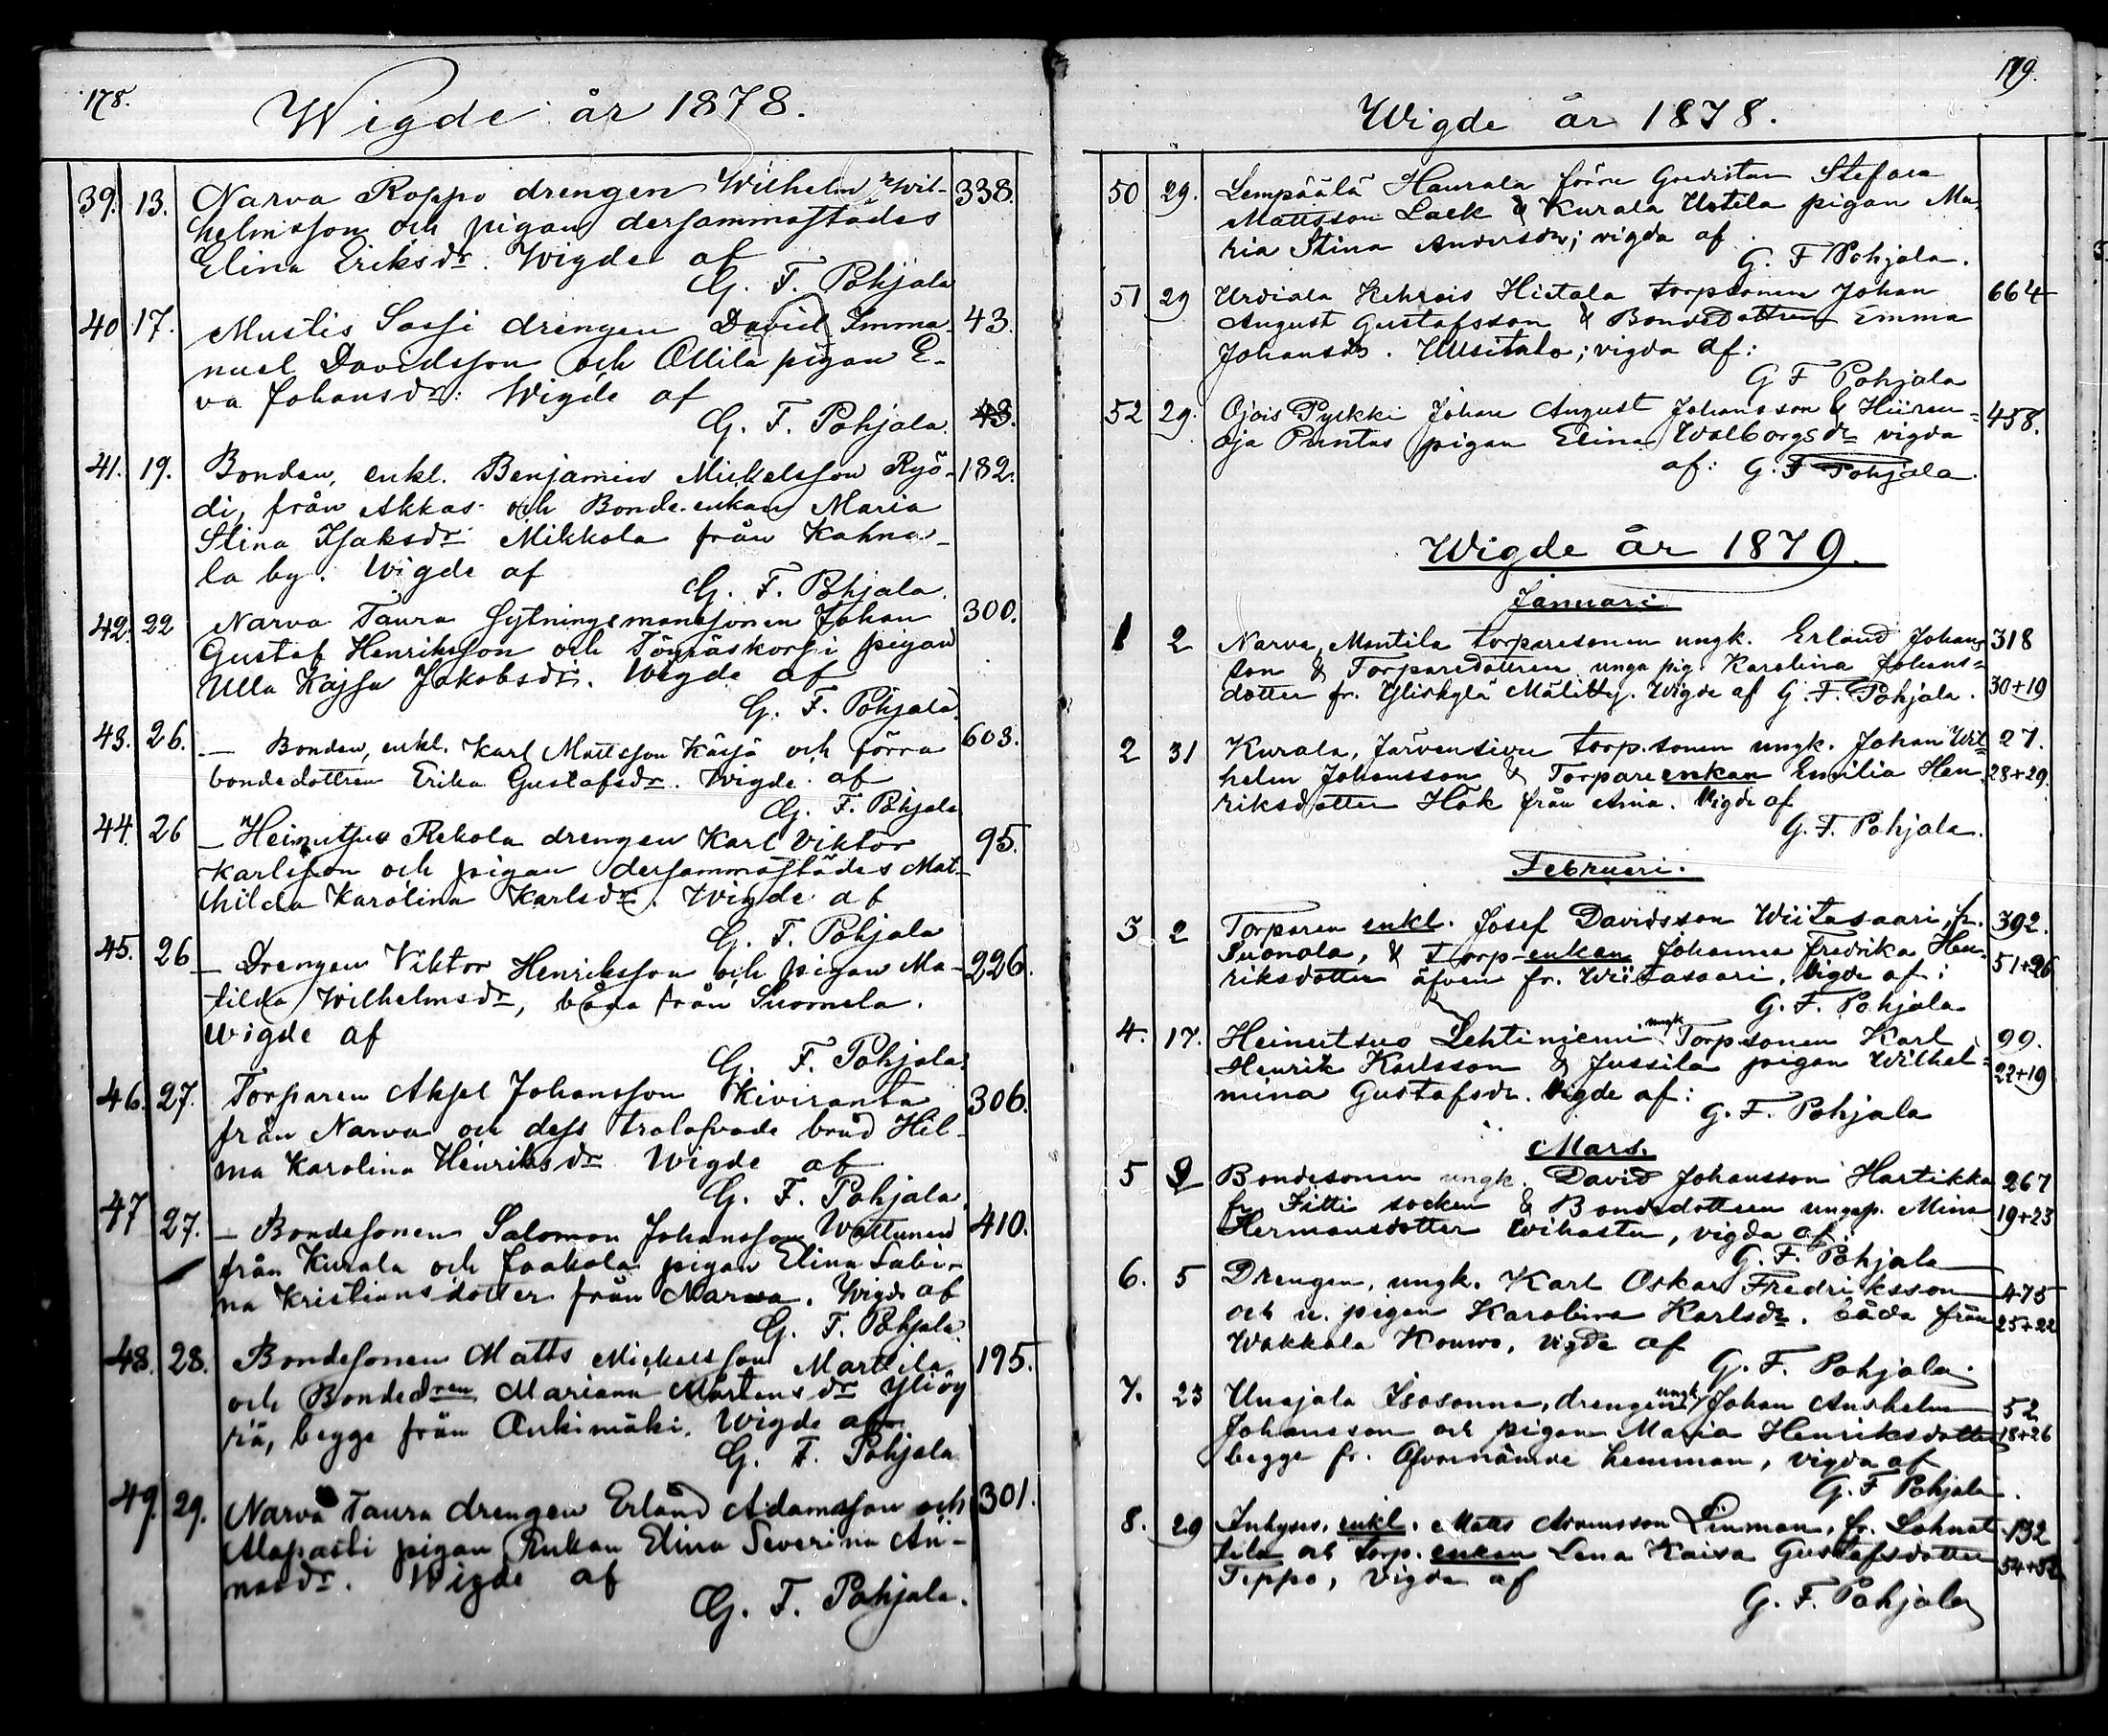 178.
Wigde år 1878.
39. 13. Narva Roppo drengen Wilhelm Wil- 338.
helmsson och pigan dersammastädes
Elina Eriksdr. Wigde af
G. F. Pohjala
40 17. Mustis Sassi drengen David Imma- 43.
nuel Davidsson och Ollila pigan E-
va Johansdr: Wigde af
G. F. Pohjala. 43.
41. 19. Bonden, enkl. Benjamin Mickelsson Ryö- 182.
di, från Akkas och Bonde-enkan Maria
Stina Isaksdr Mikkola från Kahna-
la by. Wigde af
G. F. Pohjala.
42. 22 Narva Taura Sytningsmanssonen Johan 300.
Gustaf Henriksson och pigan
Ulla Kajsa Jakobsdr. Wigde af
G. F. Pohjala.
43. 26. – Bonden, enkl. Karl Mattsson och förra 603.
bondedottren Erika Gustafsdr. Wigde af
G. F. Pohjala
44. 26 – Heinutsuo Rekola drengen Karl Viktor 95.
Karlsson och pigan dersammastädes Mat-
hilda Karolina Karlsdr. Wigde af
G. F. Pohjala
45. 26 – Drengen Viktor Henriksson och pigan Ma- 226.
tilda Wilhelmsdr, båda från Suomela.
Wigde af
G. F. Pohjala.
46. 27. Torparen Aksel Johansson Kiviranta 306.
från Narva och dess trolofvade brud Hil-
ma Karolina Henriksdr Wigde af
G. F. Pohjala.
47 27. – Bondesonen Salomon Johansson Wattunen 410.
från Kurala och Jaakola pigan Elina Sabi-
na Kristiansdotter från Narva. Wigde af
G. F. Pohjala.
48. 28. Bondesonen Matts Mickelsson Marttila, 195.
och Bondedren Mariana Mårtensdr Yliöy
riä, begge från Onkimäki. Wigde af
G. F. Pohjala
49. 29. Narva Taura drengen Erland Adamsson och 301.
Alapasti pigan Enkan Elina Severina An-
nasdr. Wigde af
G. F. Pohjala.
179.
Wigde år 1878.
50 29. Lempäälä Haurala förre Stefan
Mattsson Laek & Kurala Uotila pigan Ma-
ria Stina Andersdr; vigda af
G. F Pohjala.
51 29 Urdiala Kehrois Hietala torpsonen Johan 664
August Gustafsson & Bondedottren Emma
Johansdr. Uusitalo; vigda af:
G F Pohjala
52 29. Ojois Pyekki Johan August Johansson & Hiiren- 458.
oja Puntus pigan Elina Walborgsdr vigda
af: G. F Pohjala.
Wigde år 1879.
Januari
1 2 Narva, Mantila torparesonen ungk. Erland Johans 318
son & Torparedottren unga pig. Karolina Johans=
dotter fr. Yliskylä Wigde af G. F. Pohjala. 30+19
2 31 Kurala, Järvensivu torp.sonen ungk. Johan Wil= 27.
helm Johansson & Torpare enkan Emilia Hen- 28+29.
riksdotter Hök från Vigde af
G. F. Pohjala.
Februari.
3 2 Torparen enkl. Josef Davidsson Wiitasaari fr. 392.
Suonola, & Torp-enkan Johanna Fredrika Hen-
riksdotter äfven fr. Wiitasaari. Vigde af: 51+26
G. F. Pohjala
4. 17. Heinutsuo Lehtiniemi ungk Torpsonen Karl 99.
Henrik Karlsson & Jussila pigan Wilhel= 22+19
mina Gustafsdr. Vigde af:
G. F. Pohjala
Mars.
5 9 Bondesonen ungk. David Johansson Hartikka 267
fr Jitti socken & Bondedottren ungp. Mina 19+23
Hermansdotter Wihastu, vigda af:
G. F. Pohjala
6. 5 Drengen, ungk. Karl Oskar Fredriksson 475
och u. pigan Karolina Karlsdr, båda från 25+22
Wakkala Kouvo, Vigde af
G. F. Pohjala.
7. 23 Unajala Isosonna, drengen ungk Johan Anshelm 52
Johansson och pigan Maria Henriksdotter 18+26
begge fr. Ofvannämde hemman, vigda af
G. F Pohjala.
8. 29 Inhyses. enkl. Matts Linman, fr. 132
och torp. enkan Lena Kaisa Gustafsdotter
Seppo, Vigda af
G. F. Pohjala